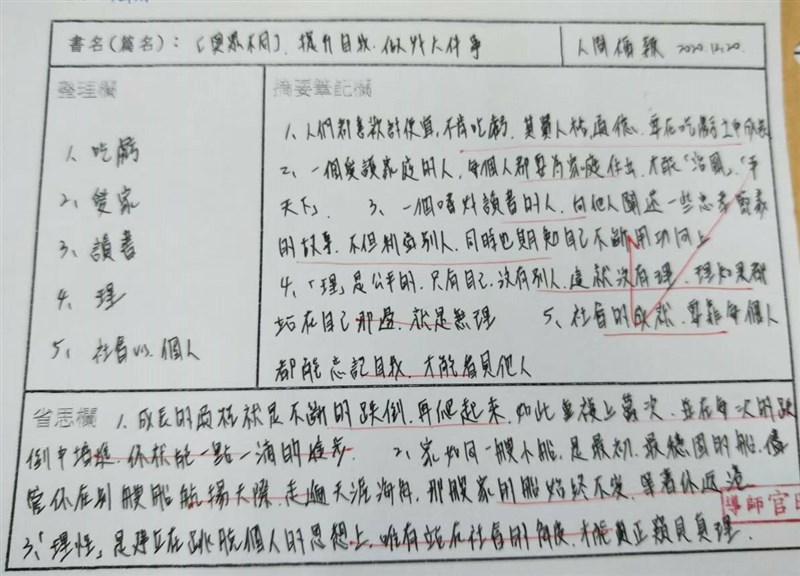 書名(篇名)：「與眾不同」、提升自我．做好大件事
人間福報 2020.12.20.
整理欄
1、吃虧
2、愛家
3、讀書
4、理
5、社會vs.個人
摘要筆記欄
1、人們都喜歡討便宜，不肯吃虧．其實人格、道德、要在吃虧上中成長
2、一個愛護家庭的人，每個人都要為家庭付出，才能「治國」、「平
天下」． 3、一個嗜好讀書的人．向他人闡述一些忠孝節義
的故事．不但利益別人．同時也期勉自己不斷用功向上
4、「理」是公平的．只有自己．沒有別人．這就沒有理．理如果都
站在自己那邊．就是無理 5、社會的成就．要靠每個人
都能忘記自我．才能看見他人
省思欄 1、成長的路程就是不斷的跌倒．再爬起來．如此重複上萬次．並在每次的跌
倒中增進．你就能一點一滴的進步． 2、家如同一艘小船．是最初．最穩固的船．儘
管你在別艘船航揚天際．走遍天涯海角．那艘家的船始終不變．等著你返還
3、「理性」是建立在跳脫個人的思想上．唯有站在社會的角度．才能真正窺見真理．
導師官